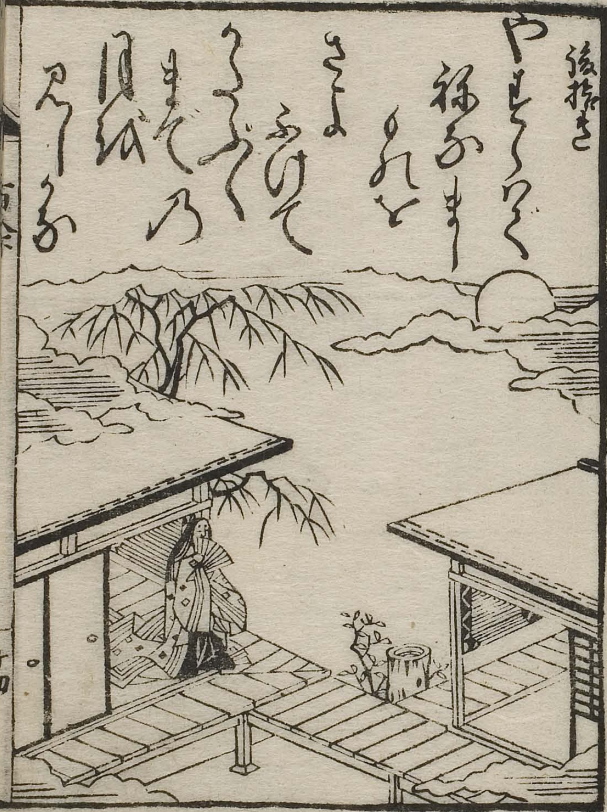 後拾遺
やすらハで
ねなまし
ものを
さよ
ふけて
かたふく
まての
月を
見しかな